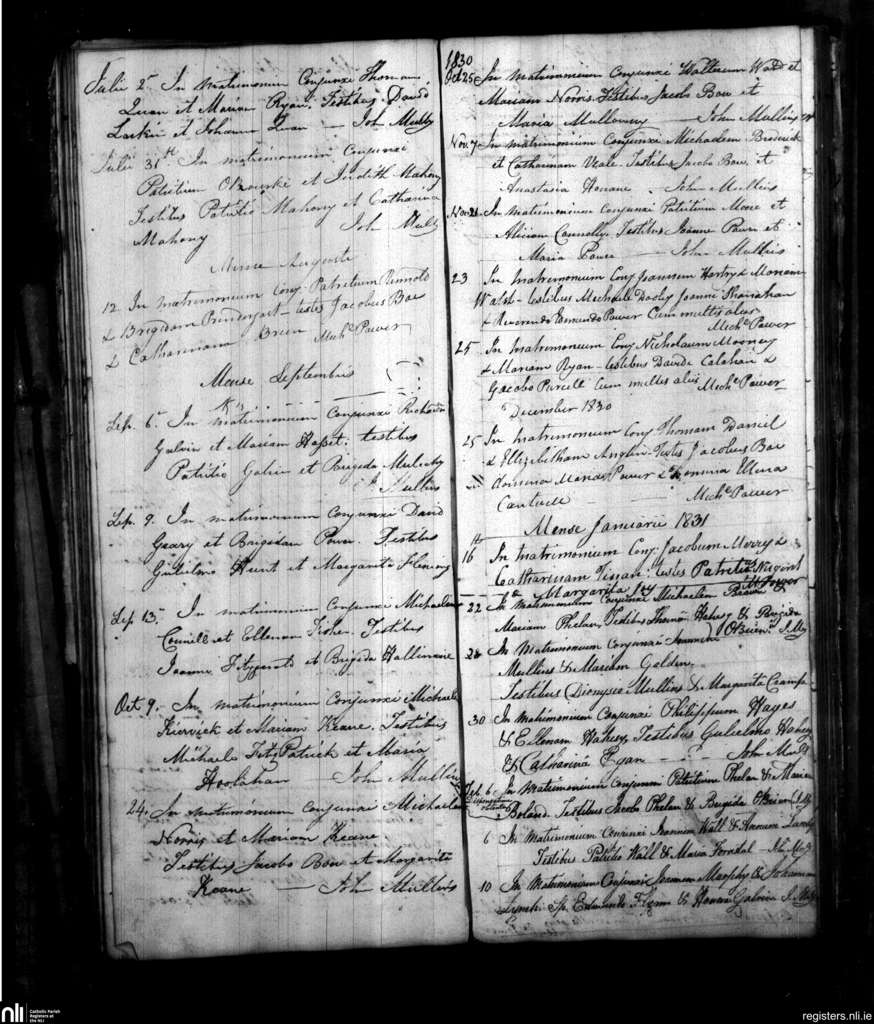 Julii 2 In matrimonium Conjunxi Thomam
Quan et Mariam Ryan. Testibus David
Larkin et Johanne Quan — John Mull
Julii 31st In matrimonium Conjunxi
Patritium ORourke et Judith Mahony
Testibus Patritio Mahony et Catharina
Mahony John Mull
Mense Augusti
12 In matrimonium Conj. Patritium
& Brigidam Prendergast - testes Jacobus Bow
& Catharinam Breen Michl Power
Mense Septembris
Sep. 6 In matrimonium Conjunxi Richardum
Galvin et Mariam Hasset. testibus
Patritio Galvin et Brigida Mulcahy
J. Mullins
Sep. 9. In matrimonium Conjunxi David
Geary et Brigidam Power. Testibus
Gulielmo Hunt et Margarita Fleming
Sep 13. In matrimonium Conjunxi Michaelem
et Ellenam Fisher. Testibus
Joanne Fitzgerald et Brigida Hallinane
Oct 9. In matrimonium Conjunxi Michael
Kirwick et Mariam Keane. Testibus
Michaele FitzPatrick et Maria
Hoolahan John Mullins
24. In matrimonium conjunxi Michaelem
Norris et Mariam Keane
Testibus Jacobo Bow et Margarita
Keane — John Mullins
1830
Oct 25 In Matrimonium Conjunxi Walterum Wall et
Mariam Norris Testibus Jacobo Bow et
Maria Mullowny — John Mullins
Nov. 7 In matrimonium Conjunxi Michaelem Broderick
et Catharinam Neale. Testibus Jacobo Bow et
Anastasia — John Mullins
Nov 21 In Matrimonium Conjunxi Patritium et
Aliciam Connolly. Testibus Joanne Power et
Maria Power — John Mullins
23 In Matrimonium Conj Joannem Hartry & Mariam
Walsh - testibus Michaele Dooly Joanne Shanahan
& Reverendo Edmundo Power Cum multis aliis
Michl Power
25 In Matrimonium Conj Nicholaum Mooney
& Mariam Ryan - testibus Davide Calahan &
Jacobo Purcell Cum multis aliis Michl Power
December 1830
25 In Matrimonium Conj Thomam Daniel
& Elizabetham Anglin - Testes Jacobus Bow
domina Maria Power & domina Ellena
Cantwell — Michl Power
Mense Januarii 1831
16 In Matrimonium Conj. Jacobum Merry &
Catharinam - testes Patritio Nugent
& Margarita M Power
22 In Matrimonium Conjunxi Michaelem Power
Mariam Phelan, Testibus Thoma Hahesy & Brigida
OBrien. J. Mull
In Matrimonium Conjunxi Joannem
Mullins & Mariam Golden,
Testibus Dionysio Mullins & Margarita Crampe
30 In Matrimonium Conjunxi Philippum Hayes
& Ellenam Hahesy, Testibus Gulielmo Hahesy
& Catharina Egan — John Mull
Feb. 6 In Matrimonium Conjunxi Patritium Phelan & Mariam
Boland. Testibus Jacobo Phelan & Brigida OBrien J. Mull
6 In Matrimonium Conjunxi Joannem Wall &
Testibus Patritio Wall & Maria — Jn. Mull
10 In Matrimonium Conjunxi Joannem Murphy & Joannam
Lynch Sp. Edmundo Flynn & Honora Galvin J. Mull
nli Catholic Parish
Registers at
the NLI
registers.nli.ie